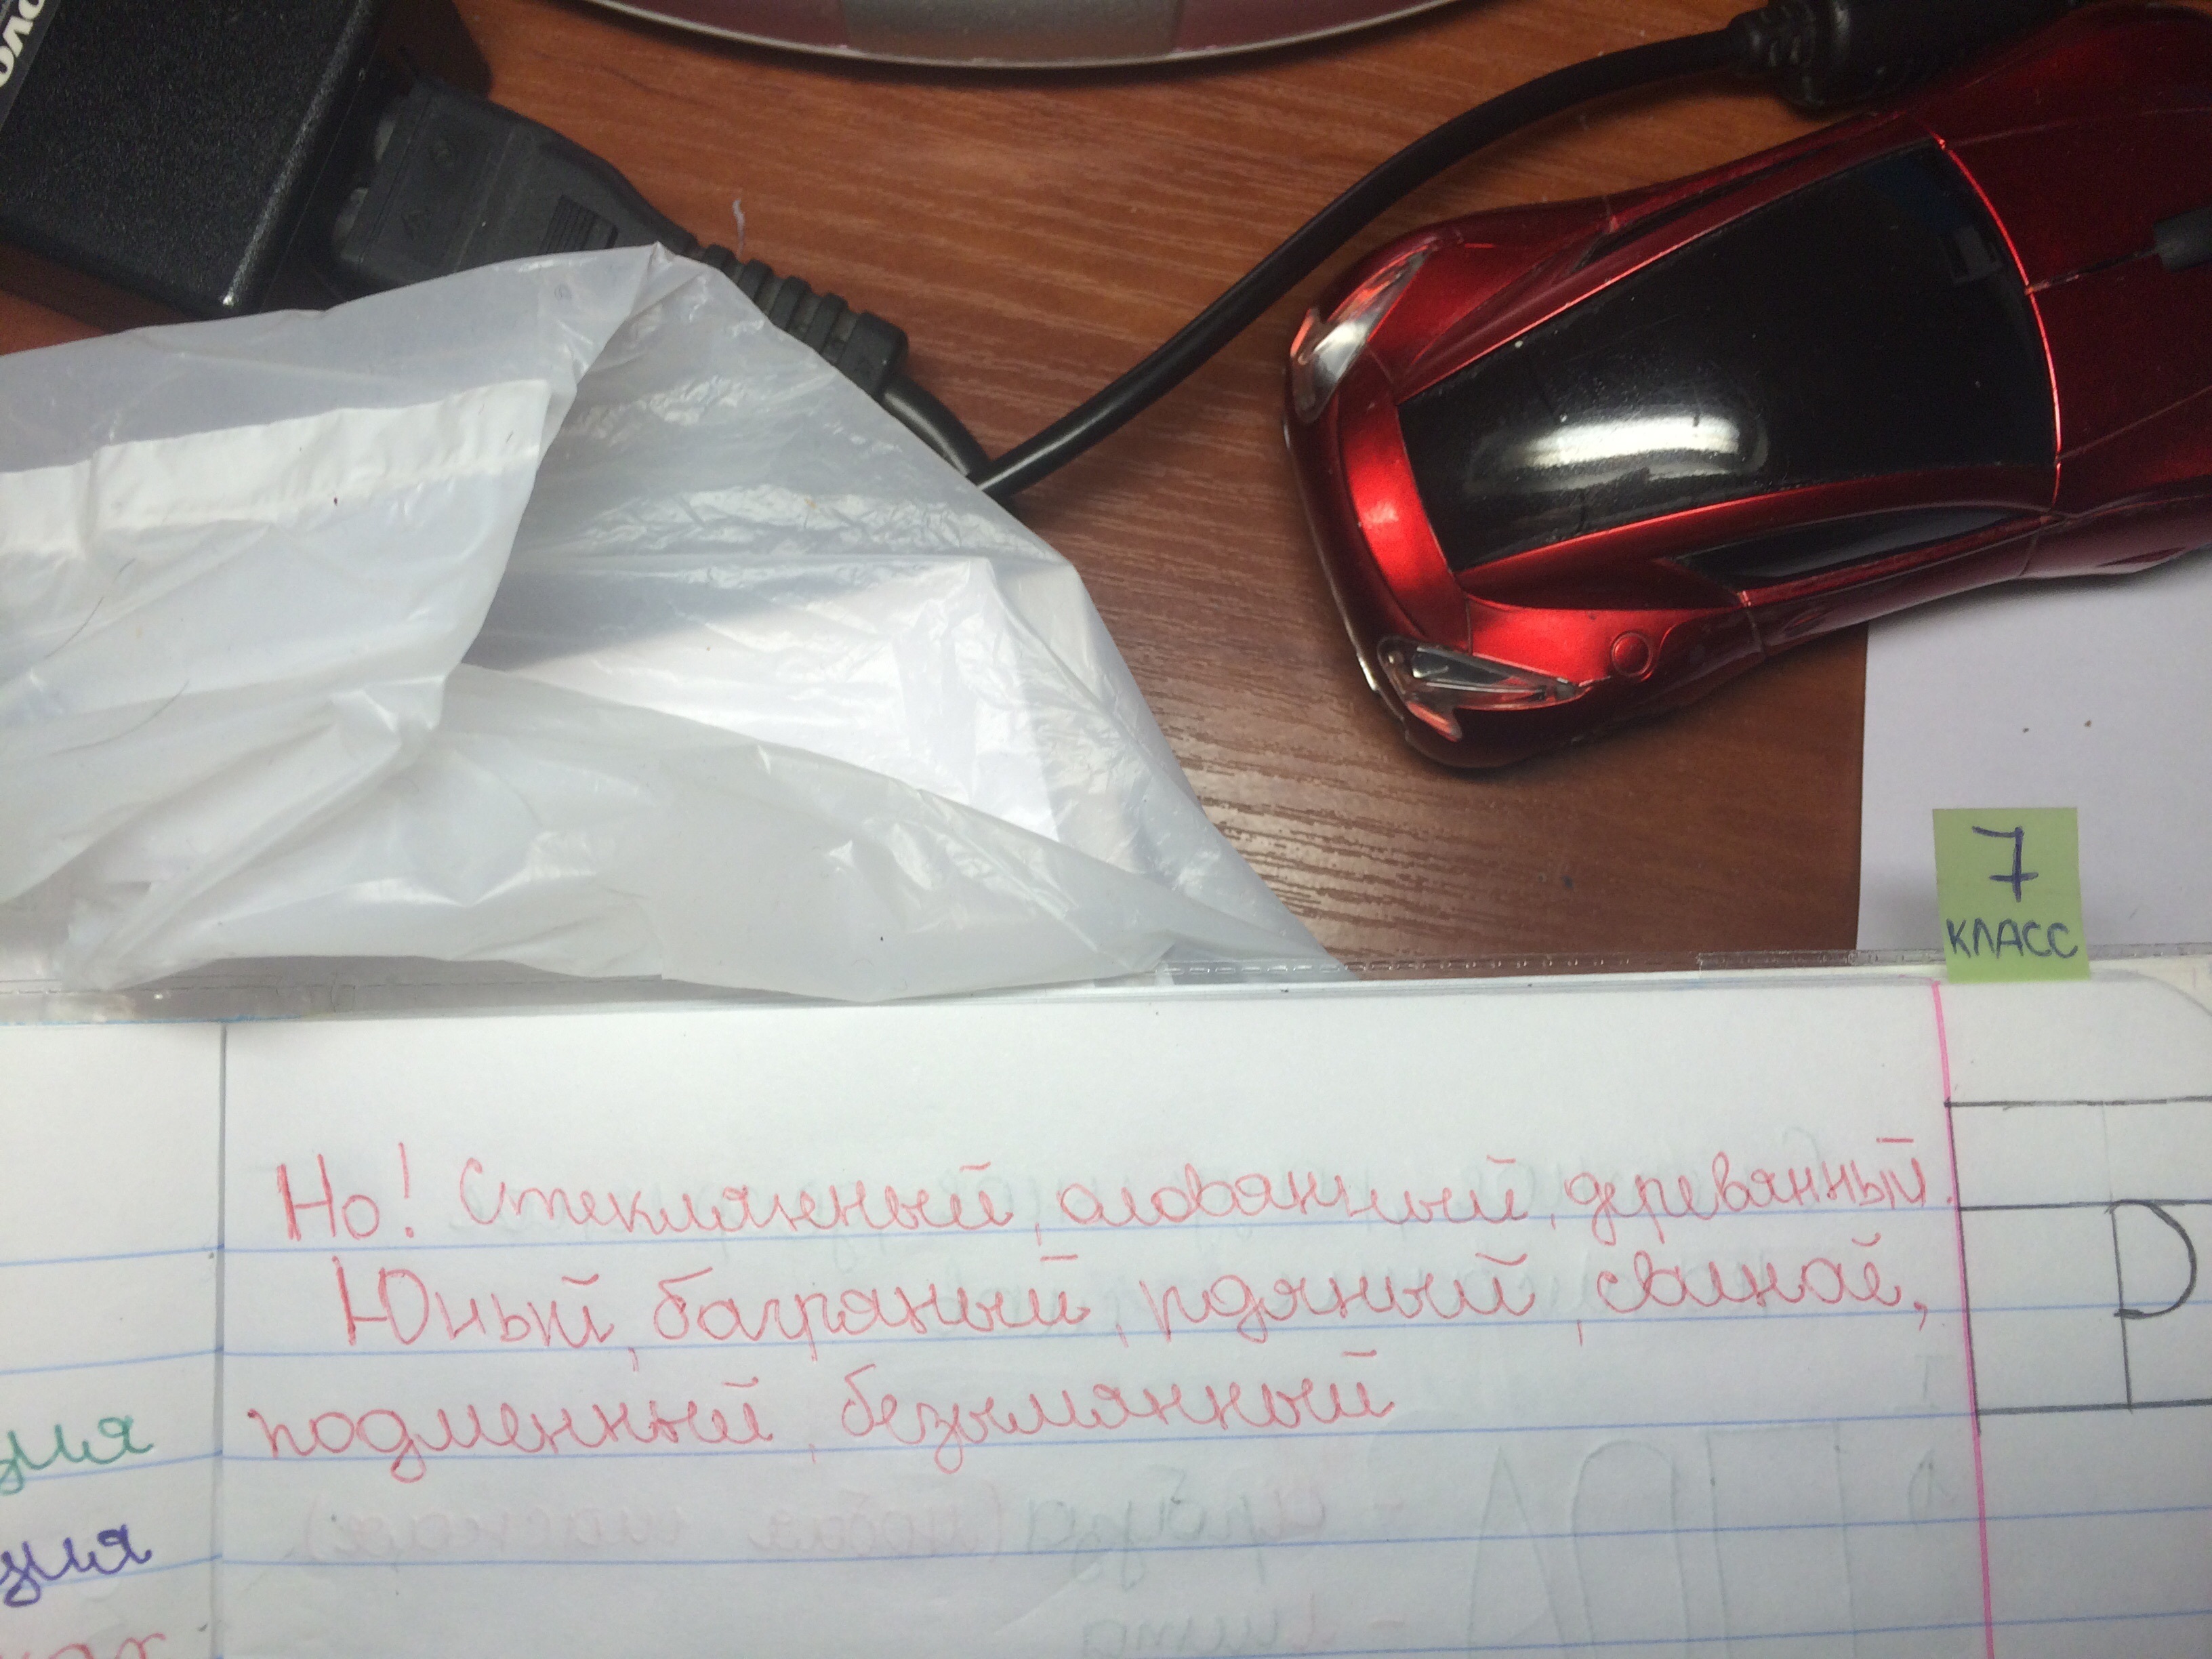 7
КЛАСС
Но! Стеклянный, оловянный, деревянный.
Юный, багряный, пряный, свиной,
подменный, безымянный
ция
ция